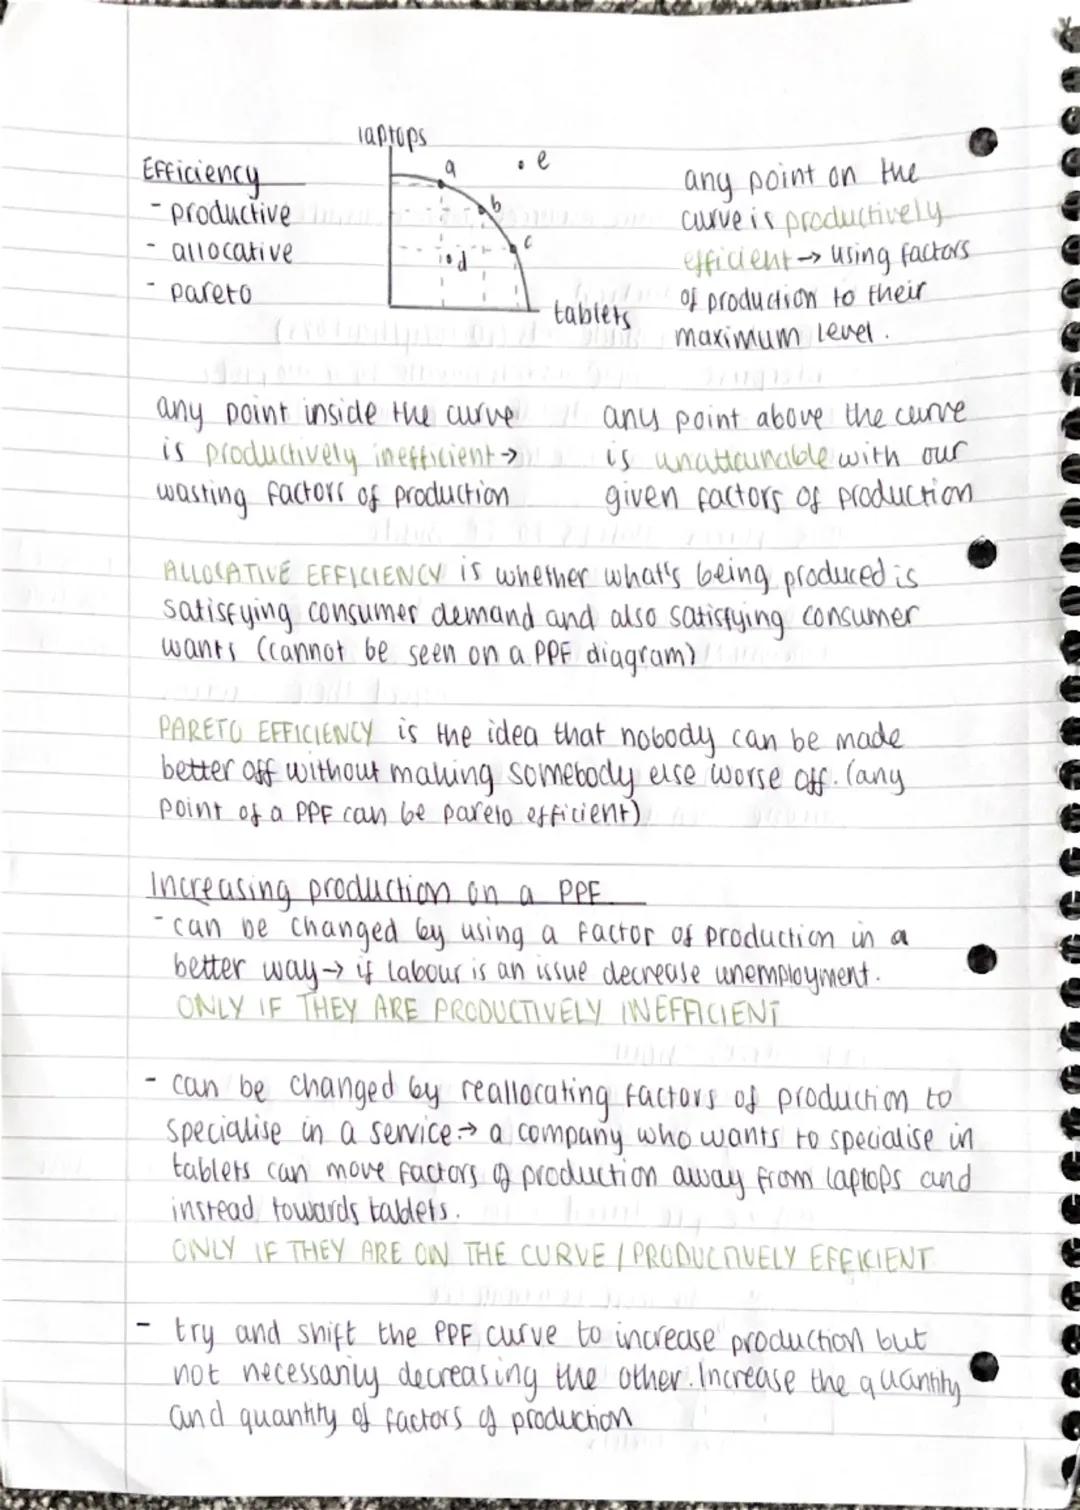 laptops
Efficiency
- productive
- allocative
- pareto
a
b
c
d
e
tablets
any point on the
curve is productively
efficient → using factors
of production to their
maximum level.
any point inside the curve
is productively inefficient →
wasting factors of production
any point above the curve
is unattainable with our
given factors of production
ALLOCATIVE EFFICIENCY is whether what's being produced is
satisfying consumer demand and also satisfying consumer
wants (cannot be seen on a PPF diagram)
PARETO EFFICIENCY is the idea that nobody can be made
better off without making somebody else worse off. (any
point of a PPF can be pareto efficient)
Increasing production on a PPF
- can be changed by using a factor of production in a
better way → if labour is an issue decrease unemployment.
ONLY IF THEY ARE PRODUCTIVELY INEFFICIENT
- can be changed by reallocating factors of production to
specialise in a service → a company who wants to specialise in
tablets can move factors of production away from laptops and
instead towards tablets.
ONLY IF THEY ARE ON THE CURVE / PRODUCTIVELY EFFICIENT
- try and shift the PPF curve to increase production but
not necessarily decreasing the other. Increase the quantity
and quantity of factors of production